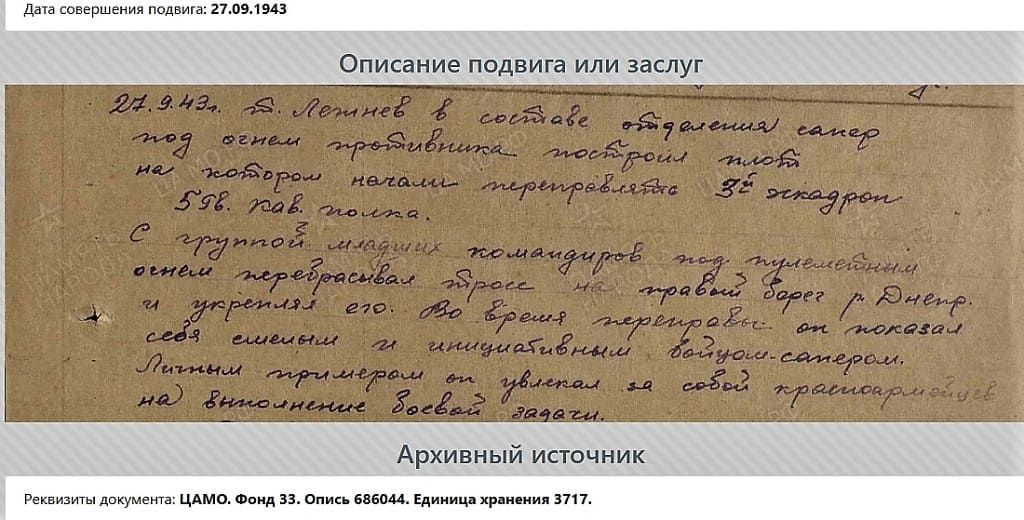 Дата совершения подвига: 27.09.1943
Описание подвига или заслуг
27.9.43г. т. Лежнев в составе отделения сапер
под огнем противника построил плот
на котором начали переправлять 3й эскадрон
5 Гв. Кав. полка.
С группой младших командиров под пулеметным
огнем перебрасывал тросс на правый берег р. Днепр.
и укреплял его. Во время переправы он показал
себя смелым и инициативным бойцом-сапером.
Личным примером он увлекал за собой красноармейцев
на выполнение боевой задачи.
Архивный источник
Реквизиты документа: ЦАМО. Фонд 33. Опись 686044. Единица хранения 3717.